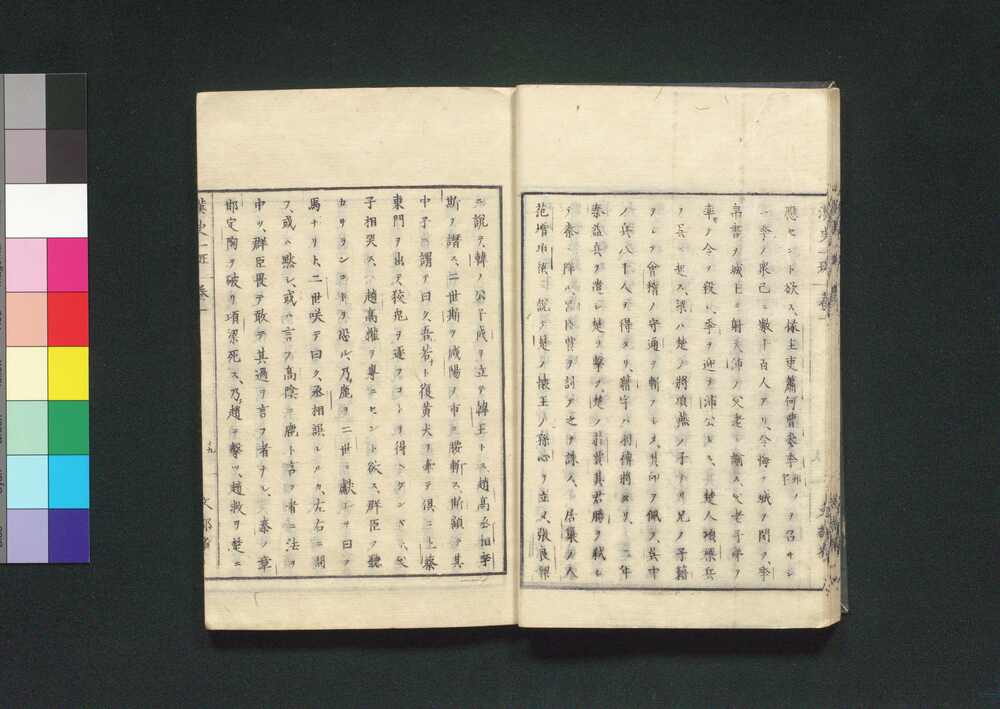 應セント欲ス、掾主吏蕭何曹參、季ヲ召サシ
ム、季ノ衆已ニ數十百人アリ、令悔テ城ヲ閉ツ、季
帛書ヲ城上ニ射テ沛ノ父老ニ諭ス、父老子弟ヲ
率テ令ヲ殺シ、季ヲ迎テ沛公トス、其楚人項梁兵
ヲ吳ニ起ス、梁ハ楚ノ將項燕ノ子ナリ、兄ノ子籍
ヲシテ會稽ノ守通ヲ斬ラシメ、其印ヲ佩ヒ、吳中
ノ兵八千人ヲ得タリ、籍字ハ羽、裨將タリ、二年
秦益兵ヲ遣シ、楚ヲ擊ツ、楚ノ莊賈其君勝ヲ弑シ
テ秦ニ降ル、呂臣賈ヲ討テ之ヲ誅ス、居鄛ノ人
范增項梁ニ說テ楚ノ懷王ノ孫心ヲ立ツ、張良梁
ニ說テ、韓ノ公子成ヲ立テ韓王トス、趙高丞相李
斯ヲ譖ス、二世斯ヲ咸陽ノ市ニ腰斬ス、斯顧テ其
中子ニ謂テ曰ク、吾若ト復黃犬ヲ牽テ俱ニ上蔡
東門ヲ出テ狡兔ヲ逐フコトヲ得ヘケンヤト、父
子相哭ス、趙高權ヲ專ニセント欲ス、群臣ノ聽
カサランコトヲ恐ル、乃鹿ヲ二世ニ獻シテ曰ク
馬ナリト、二世咲テ曰ク、丞相誤レルカ、左右ニ問
フ、或ハ默シ、或ハ言フ、高陰ニ鹿ト言フ者ニ法ヲ
中ツ、群臣畏テ敢テ其過ヲ言フ者ナシ、秦ノ章
邯定陶ヲ破リ項梁死ス、乃趙ヲ擊ツ、趙救ヲ楚ニ
漢史一班 卷一
九
文部省